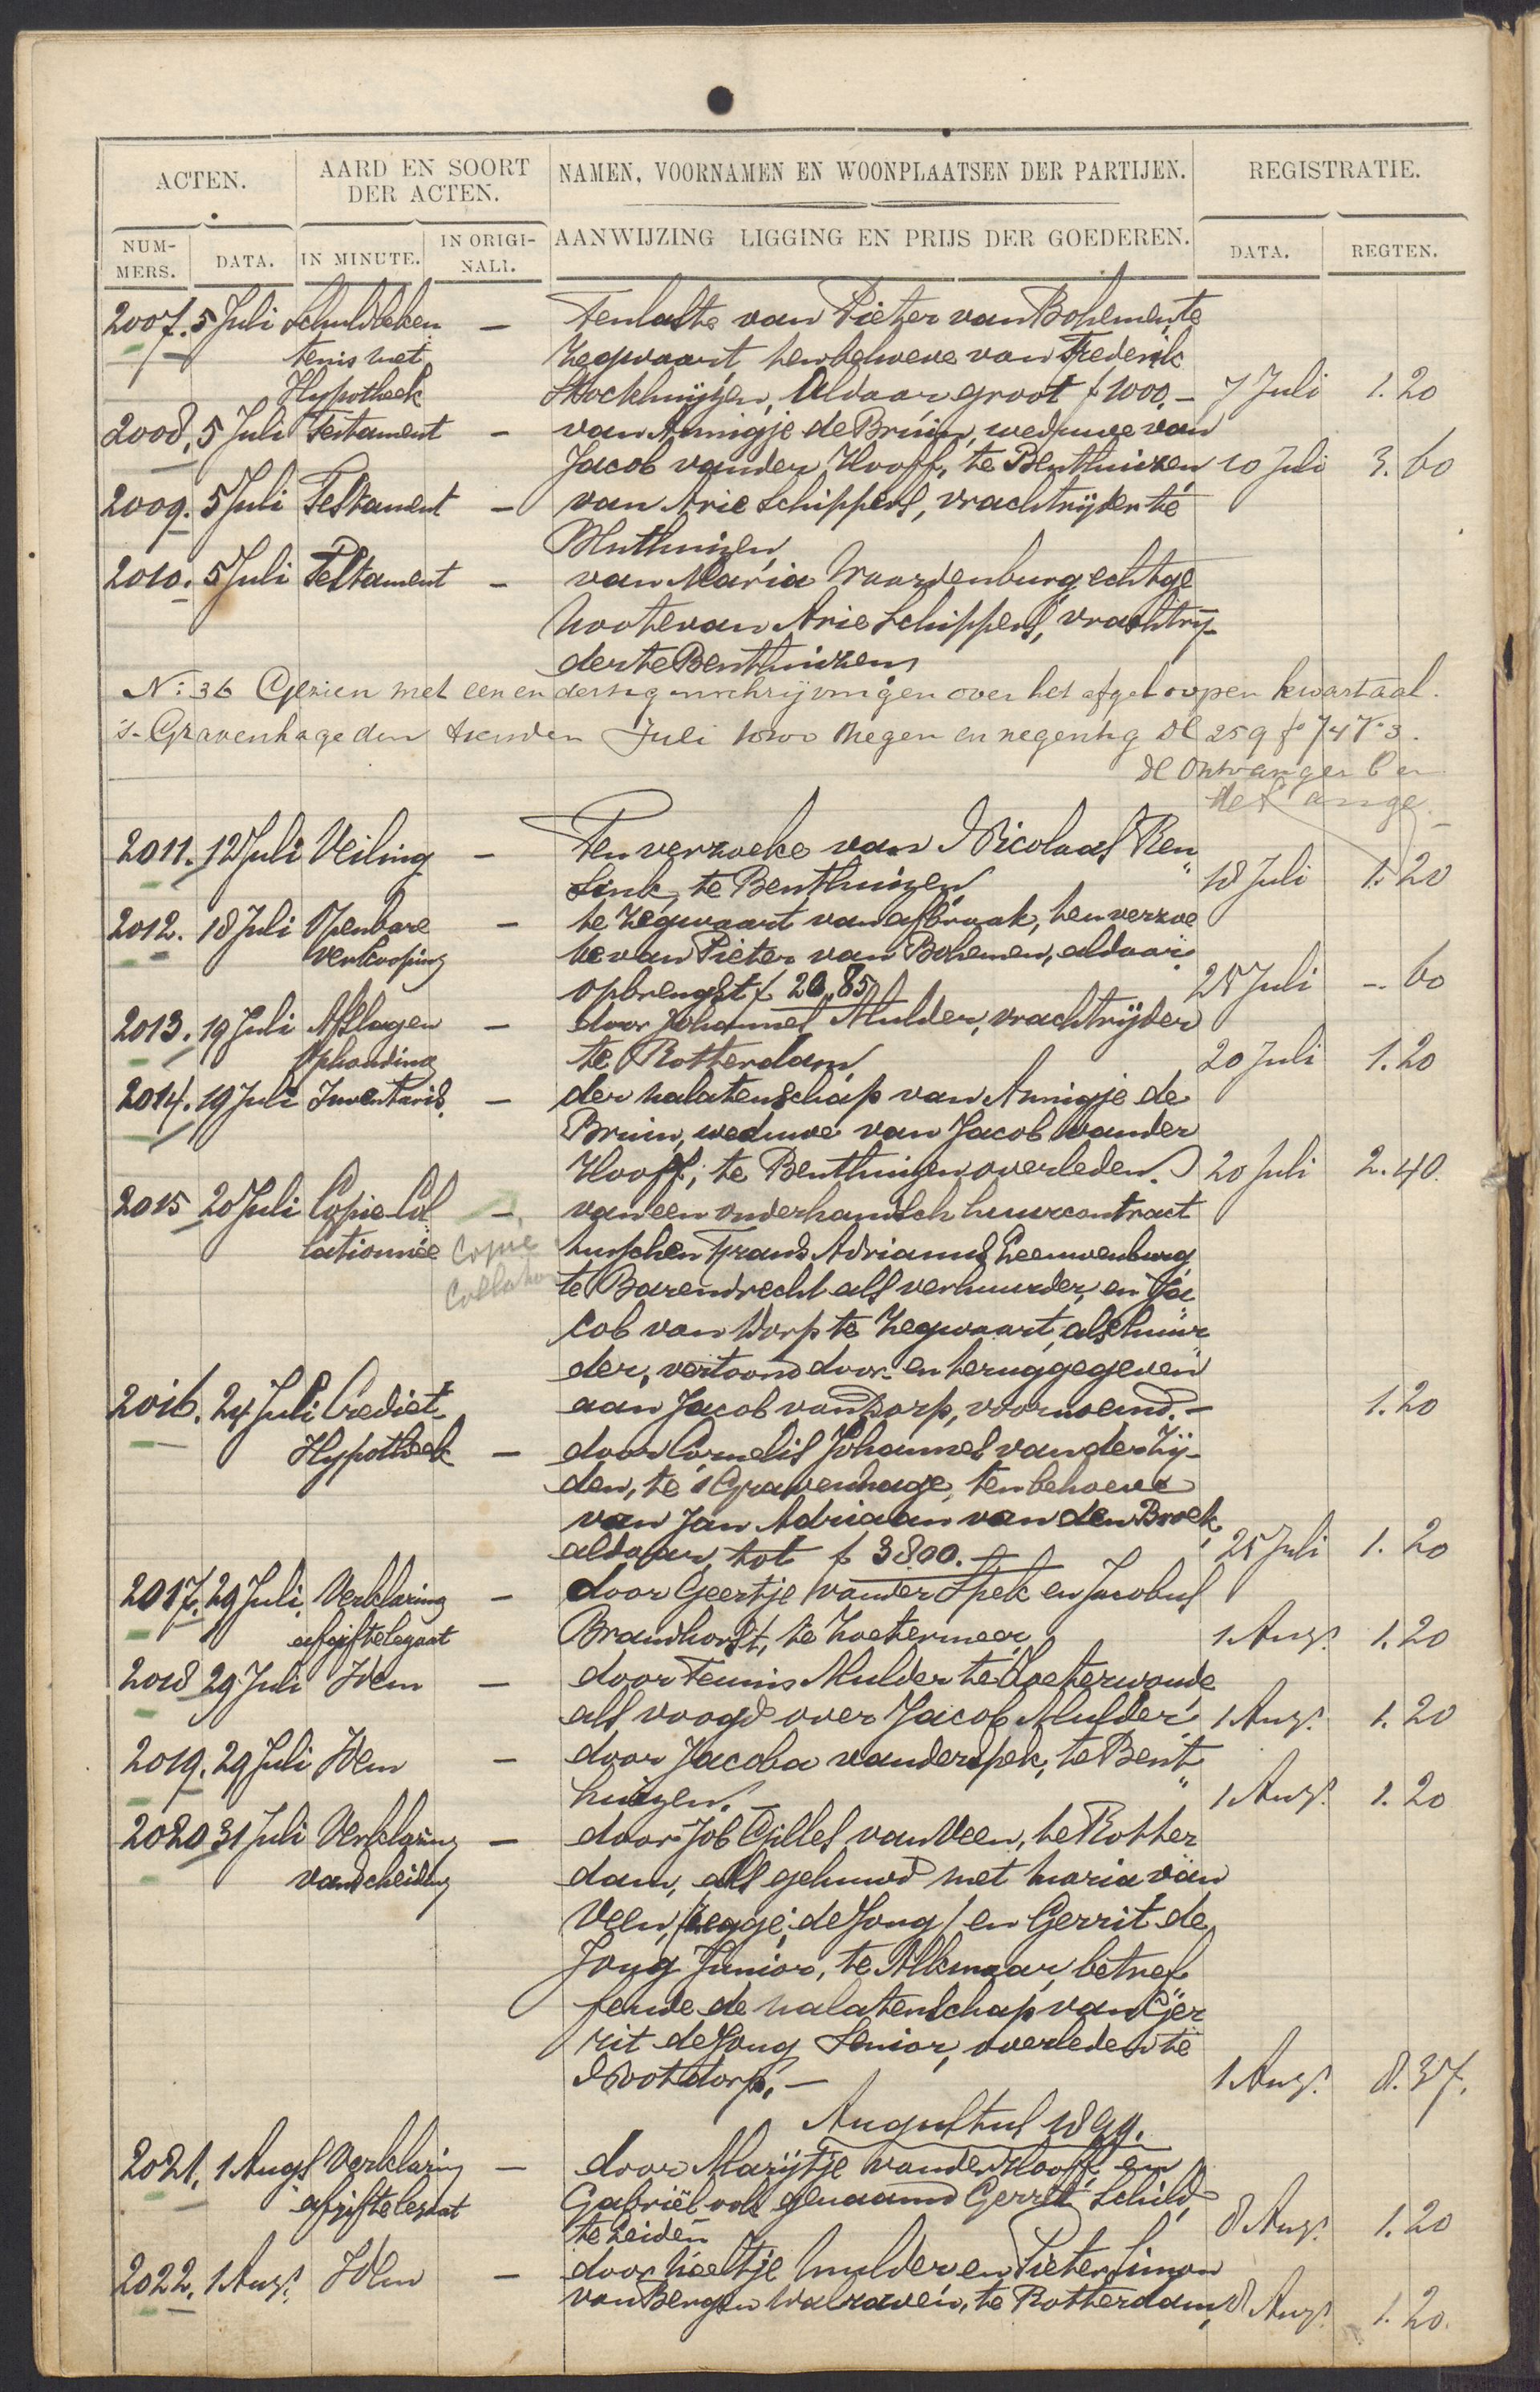 ACTEN. AARD EN SOORT DER ACTEN. NAMEN, VOORNAMEN EN WOONPLAATSEN DER PARTIJEN. REGISTRATIE.
NUM-MERS. DATA. IN MINUTE. IN ORIGI-NALI. AANWIJZING LIGGING EN PRIJS DER GOEDEREN. DATA. REGTEN.
2007. 5 Juli Schuldbeken — Tenlaste van Pieter van Bohemen, te
tenis met Zegwaart, ten behoeve van Frederik
Hypotheek Stockhuijzen, Aldaar groot f 1000.— 7 Juli 1.20
2008. 5 Juli Testament — van Annigje de Bruin, weduwe van
Jacob van der Hooff, te Benthuizen 10 Juli 3.60
2009. 5 Juli Testament — van Arie Schippers, vrachtrijder te
Benthuizen
2010. 5 Juli Testament — van Maria Waardenburg echtge
noote van Arie Schippers, vrachtrij-
der te Benthuizen
N: 36 Gezien met een en dertig inschrijvingen over het afgeloopen kwartaal.
's-Gravenhage den tienden Juli 1800 negen en negentig Dl 259 fo 74 V. 3.
De Ontvanger
de Lange
2011. 12 Juli Veiling — Ten verzoeke van Nicolaas Ren
sink, te Benthuizen 18 Juli 1.20
2012. 18 Juli Openbare — te Zegwaart van afbraak, ten verzoe
Verkooping ke van Pieter van Bohemen, aldaar
opbrengst f 20.85 25 Juli —.60
2013. 19 Juli Afslagen — door Johannes Mulder, vrachtrijder
Ophouding te Rotterdam 20 Juli 1.20
2014. 19 Juli Inventaris — der nalatenschap van Annigje de
Bruin, weduwe van Jacob van der
Hooff, te Benthuizen overleden. 20 Juli 2.40.
2015 20 Juli Copie Col —. van een onderhandsch huurcontract
lationnée Copie tusschen Frans Adrianus Leeuwenburg
Collation te Barendrecht als verhuurder, en Ja
cob van Dorp te Zegwaart, als huur
der, vertoond door en teruggegeven
2016. 24 Juli Crediet- aan Jacob van Dorp, voornoemd.— 1.20
Hypotheek — door Cornelis Johannes van der Zij-
den, te 's Gravenhage, ten behoeve
van Jan Adriaan van den Broek,
aldaar, tot f 3800.— 25 Juli 1.20
2017. 29 Juli Verklaring — door Geertje van der Spek en Jacobus
afgifte legaat Brandhorst, te Zoetermeer 1 Augs. 1.20
2018 29 Juli Idem — door Teunis Mulder te Zoeterwoude
als voogd over Jacob Mulder 1 Augs. 1.20
2019. 29 Juli Idem — door Jacoba van der Spek, te Bent
huizen.— 1 Augs. 1.20
2020 31 Juli Verklaring — door Job Gilles van Veen, te Rotter
van Scheiding dam, als gehuwd met Maria van
Veen, /zegge; de Jong/ en Gerrit de
Jong Junior, te Alkmaar, betref
fende de nalatenschap van Ger
rit de Jong Senior, overleden te
Nootdorp.— 1 Augs. 8.37.
Augustus 1899.
2021. 1 Augs Verklaring — door Marijtje van der Hooff en
afgifte legaat Gabriël ook genaamd Gerrit Schild
te Leiden 8 Augs. 1.20
2022. 1 Augs. Idem — door Neeltje Mulder en Pieter Simon
van Bergen Walraven, te Rotterdam, 8 Augs. 1.20.